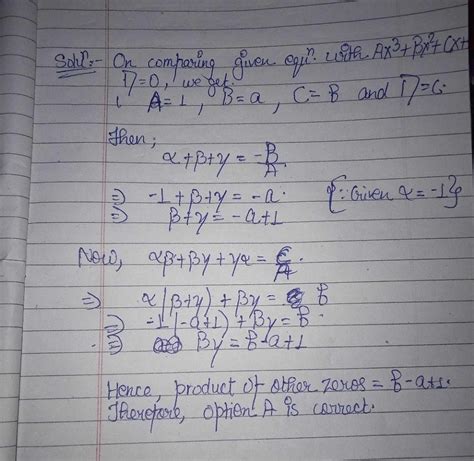 Solⁿ:- On comparing given equⁿ. with Ax³+Bx²+Cx+
D=0, we get.
A=1, B=a, C=B and D=C.
Then;
α+β+γ = -B/A
⇒ -1+β+γ = -a. {∵ Given α = -1}
⇒ β+γ = -a+1
Now, αβ+βγ+γα = C/A.
⇒ α(β+γ) + βγ = b
⇒ -1(-a+1) + βγ = b.
⇒ βγ = b-a+1
Hence, product of other zeros = b-a+1.
Therefore, option A is correct.